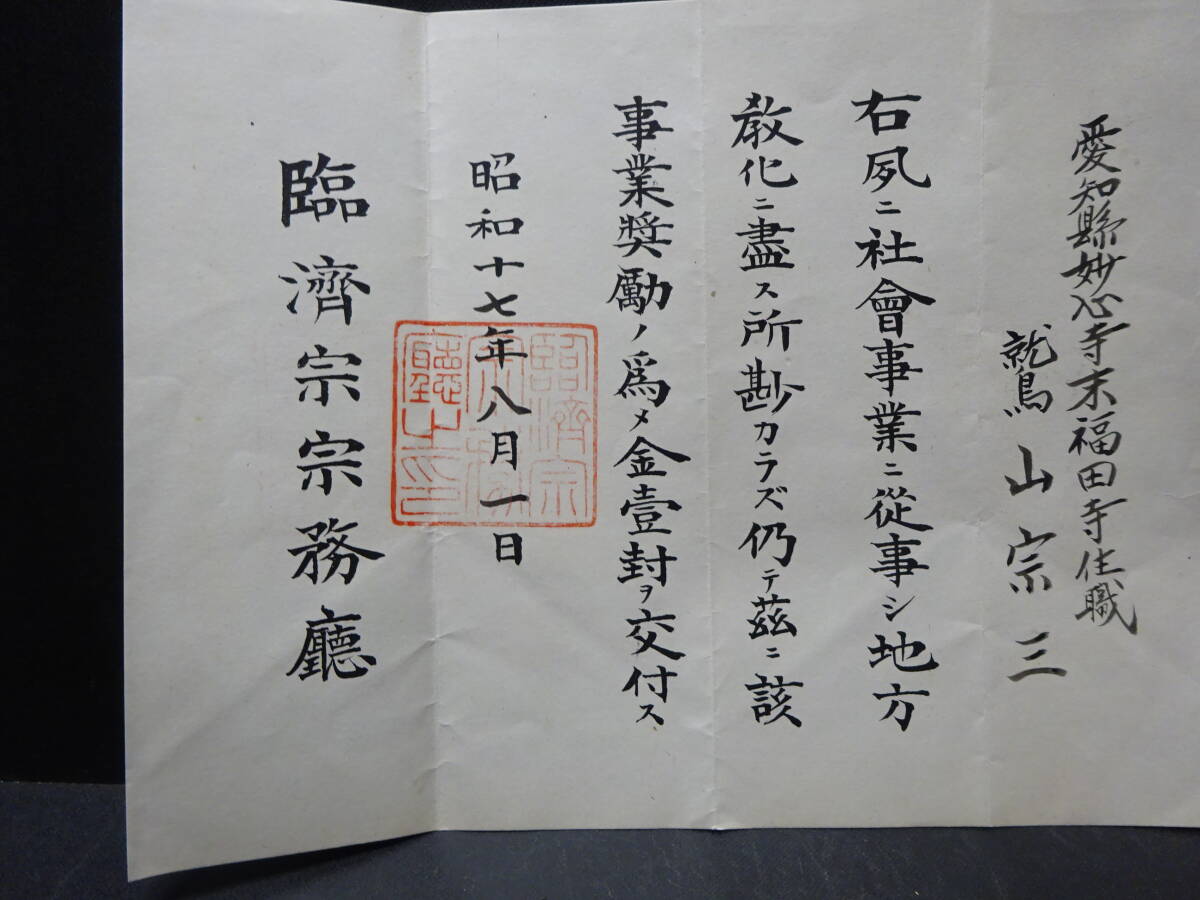 愛知縣妙心寺末福田寺住職
鷲山宗三
右夙ニ社會事業ニ從事シ地方
教化ニ盡ス所尠カラズ仍テ茲ニ該
事業奬勵ノ爲メ金壹封ヲ交付ス
昭和十七年八月一日
臨濟宗宗務廳
臨濟宗
宗務
廳之印